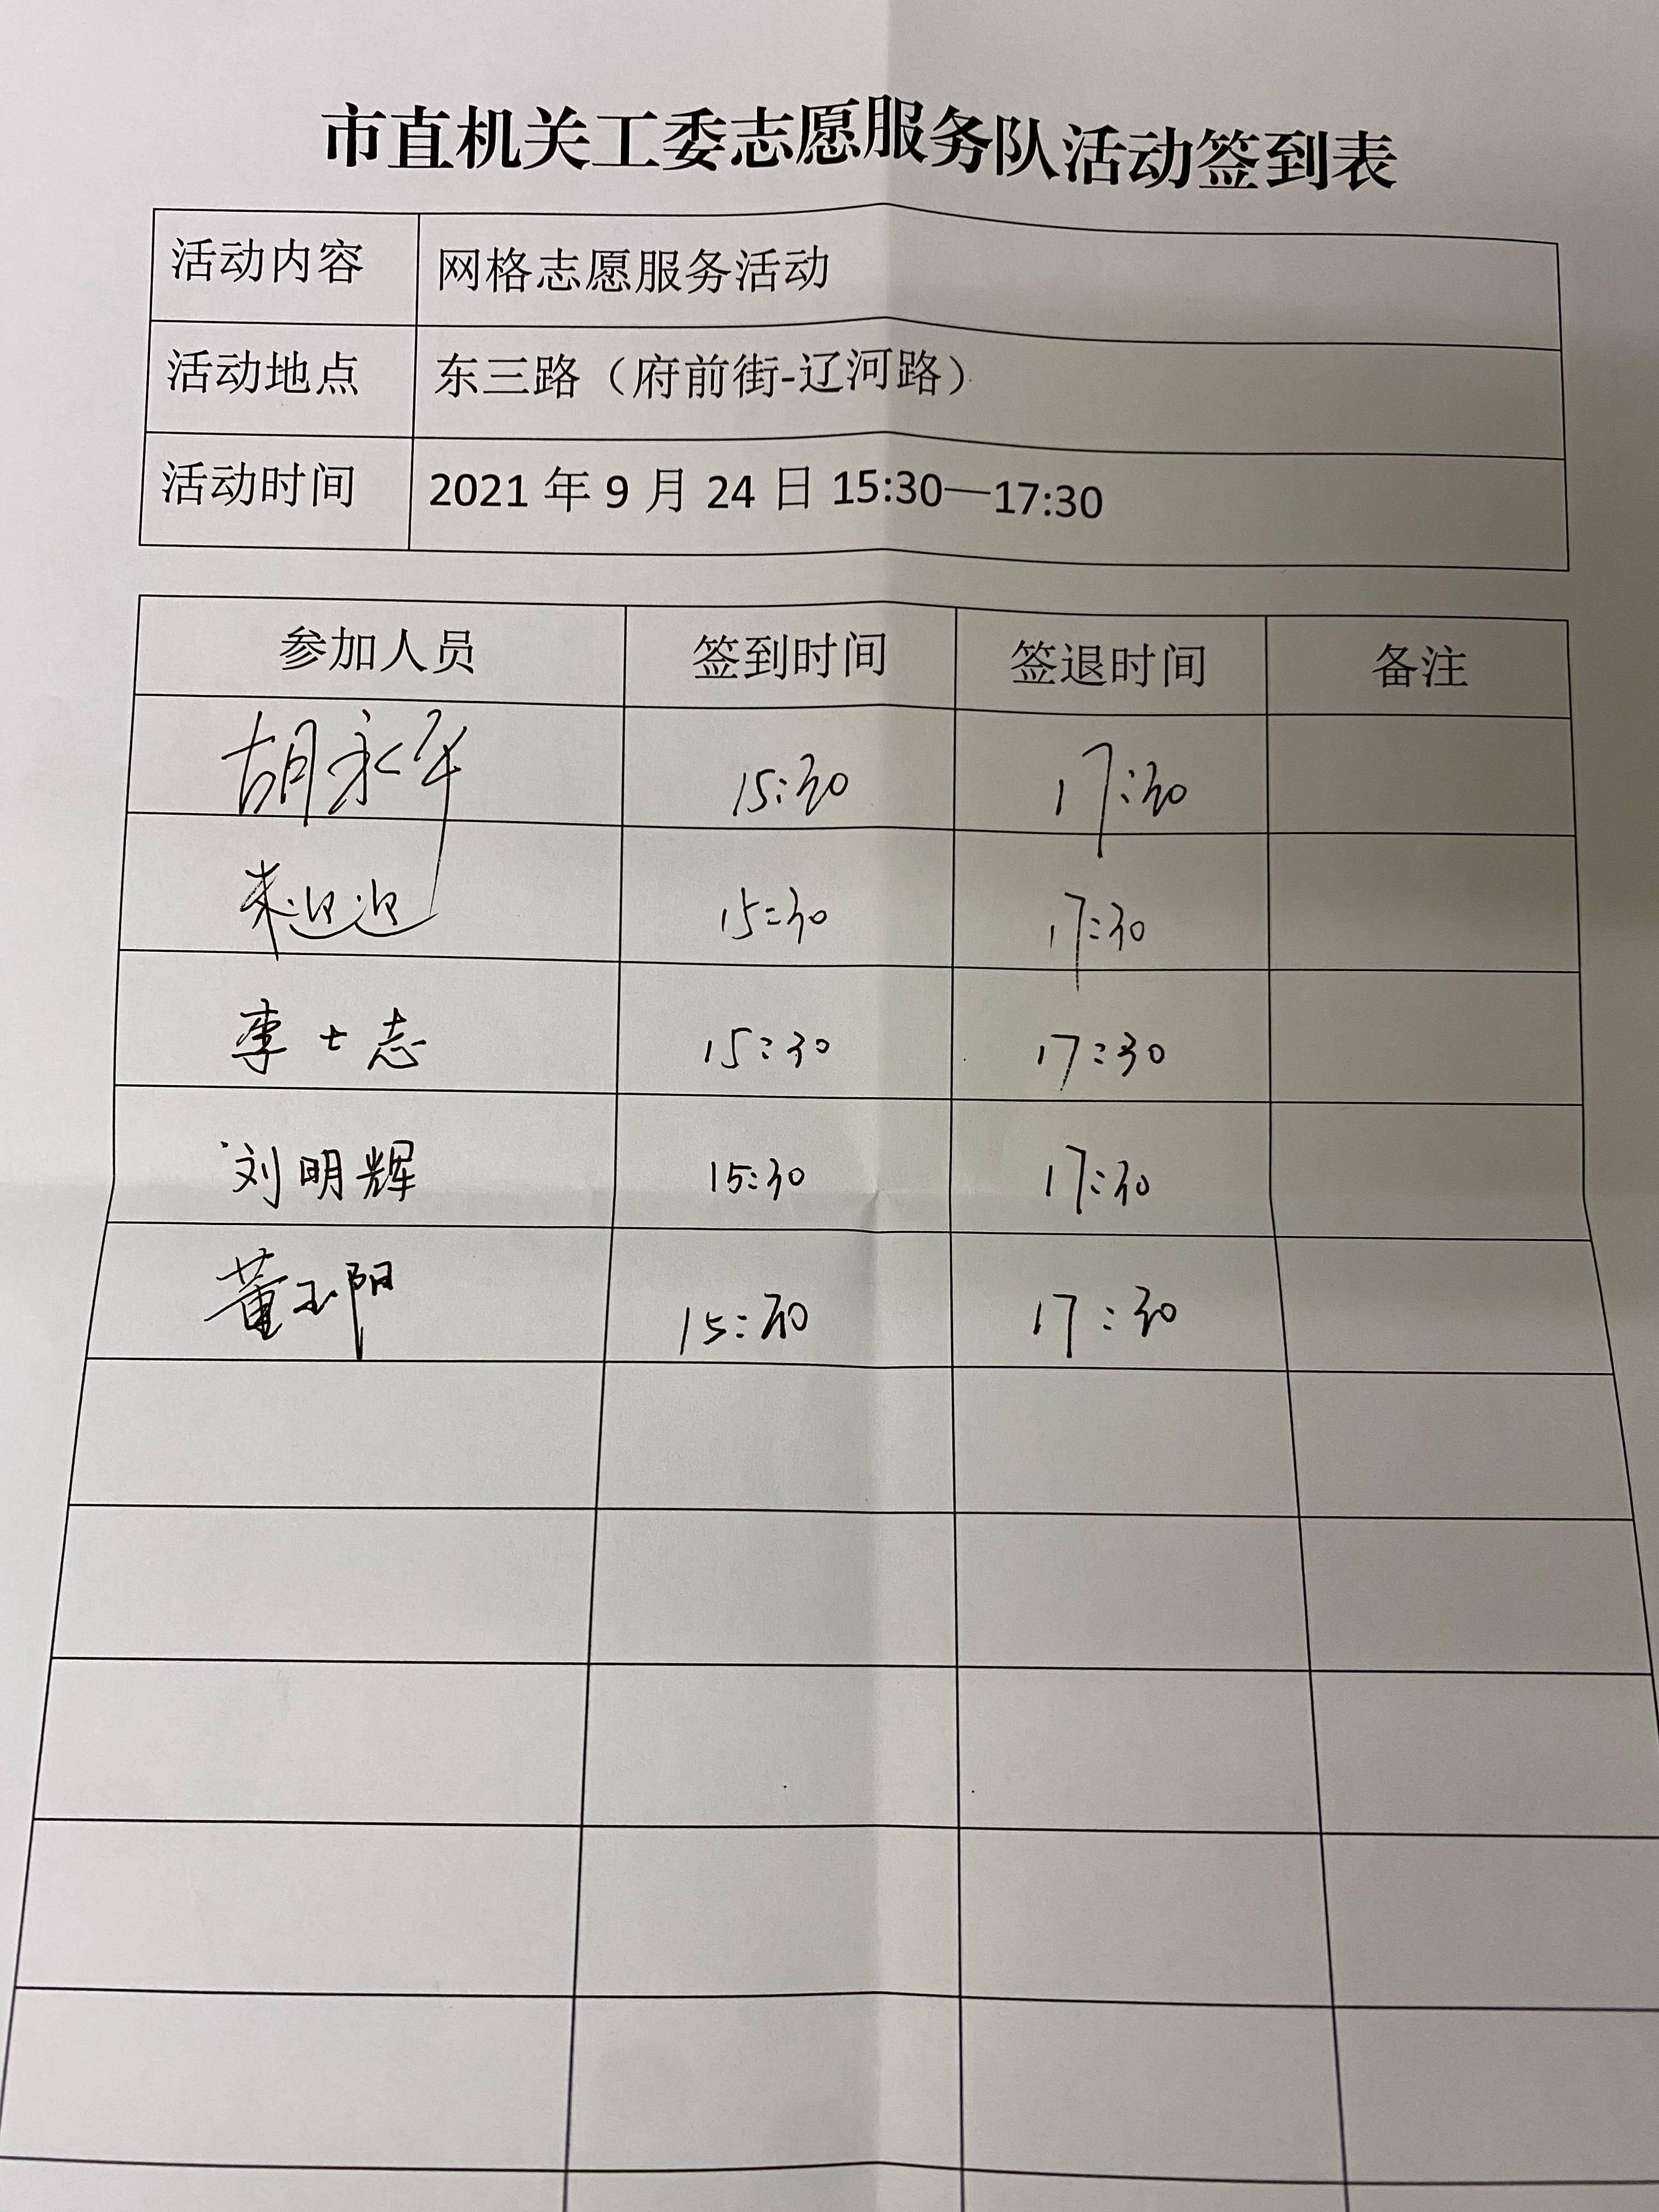 市直机关工委志愿服务队活动签到表
活动内容 网格志愿服务活动
活动地点 东三路（府前街-辽河路）
活动时间 2021年9月24日15:30—17:30
参加人员 签到时间 签退时间 备注
胡永军 15:30 17:30
朱迎迎 15:30 17:30
李士志 15:30 17:30
刘明辉 15:30 17:30
董玉阳 15:30 17:30